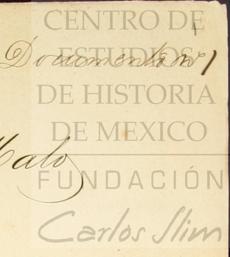 CENTRO DE
ESTUDIOS
Documento nº 1
DE HISTORIA
DE MEXICO
Malo
FUNDACIÓN
Carlos Slim